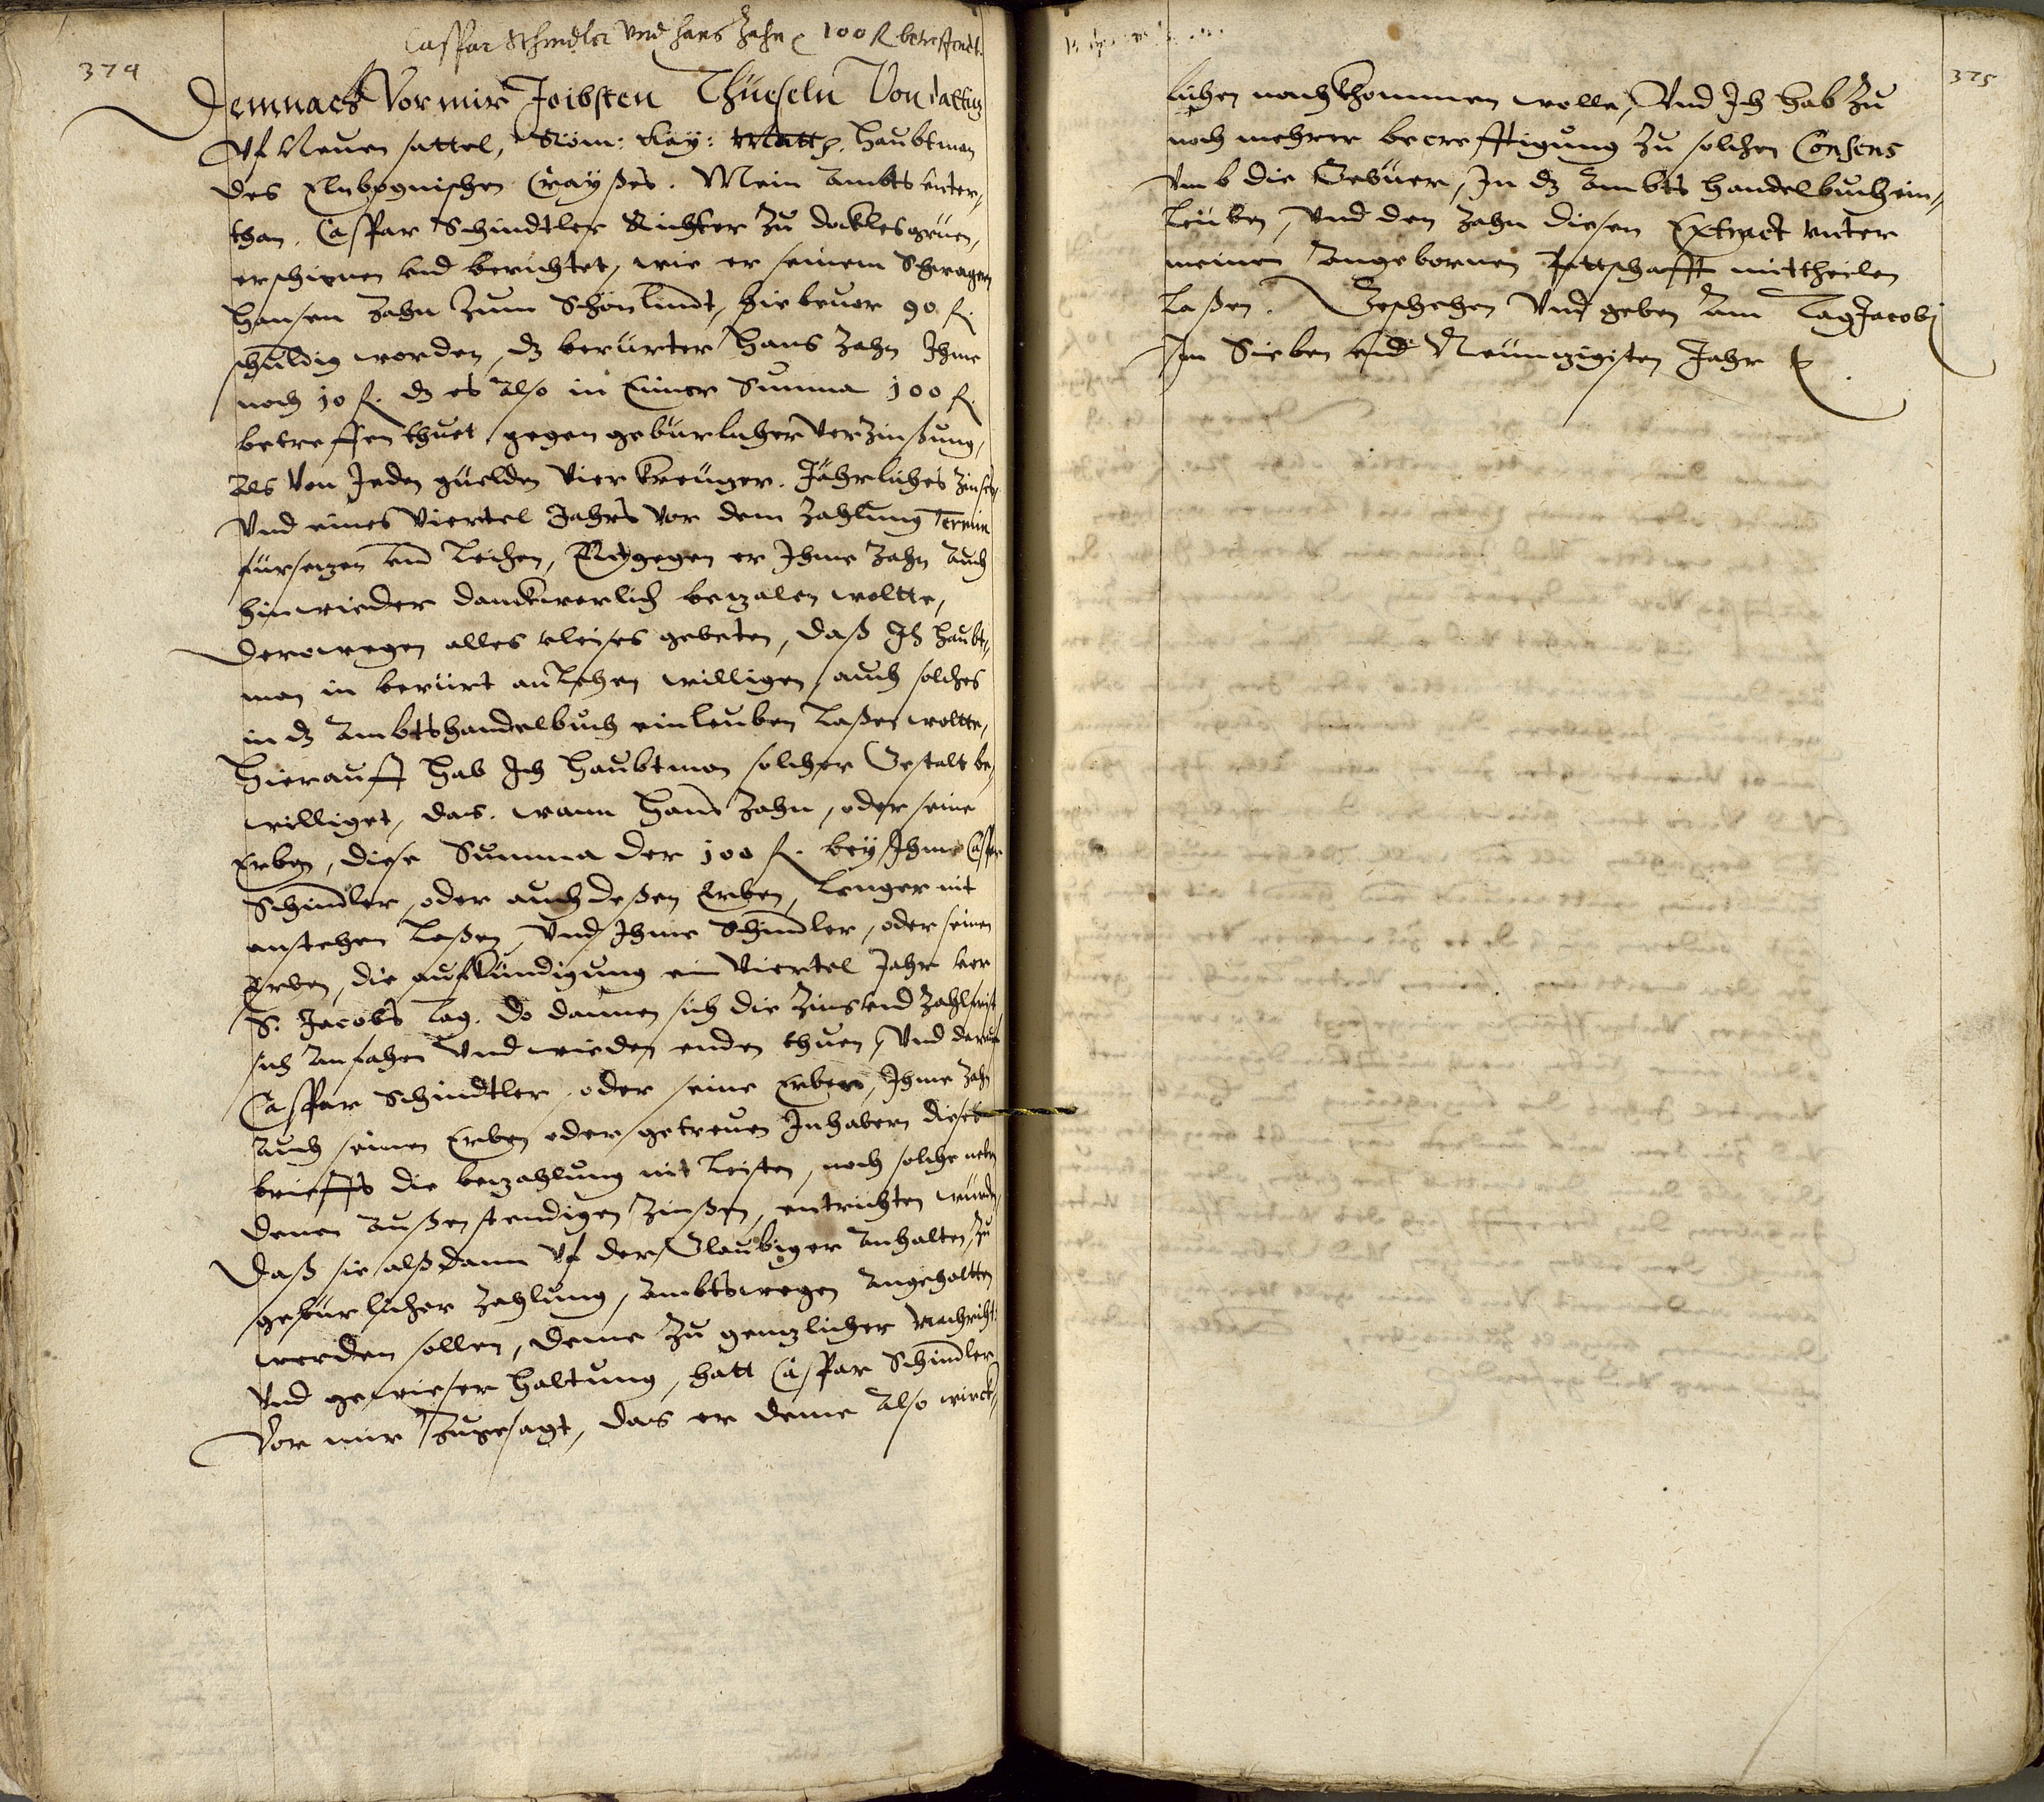 374
Caspar Schindler vnd Hans Zahn 100 fl betreffendt.
Demnach Vor mir Joibsten Thüeseln Von daltiz
Vf Neuen sattel, Röm: Kay: Matt. Haubtman
des Elnbognischen Crayßes. Mein Ambts vnter,,
than. Caspar Schindtler Richter Zu
erschienen vnd berichtet, wie er seinem Schwagern
Hansen Zahn Zum Schönlindt, hiebeuor 90 fl.
schuldig worden, dz berürter Hans Zahn Ihme
noch 10 fl. dz es Also in Einer Summa 100 fl.
betreffen thuet, gegen gebürlicher Verzinßung,
Als Von Jeden gülden Vier Kreuzer. Jährliches Zinses,
Vnd eines Viertel Jahrs Vor dem Zahlung Termin
fürsezen vnd Leihen, Entgegen er Ihme Zahn Auch
hinwieder danckwerlich bezalen woltte,
Derowegen alles vleises gebeten, daß Ich Haubt,,
man in berürt anlehen willigen, auch solches
in dz Ambtshandelbuch einleuben Laßen woltte,
Hierauff hab Ich Haubtman solcher Gestalt be,,
williget, das. wann Hans Zahn, oder seine
Erben, diese Summa der 100 fl. bey Ihme Caspar
Schindler, oder auch deßen Erben, Lenger nit
anstehen Laßen, Vnd Ihme Schindler, oder seinen
Erben, die aufkündigung ein Viertel Jahr vor
S. Jacobs Tag. do dannen sich die Zins vnd Zahlfrist
sich Anfahen Vnd wieder enden thuen, Vnd darauf
Caspar Schindtler, oder seine Erben, Ihme Zahn
Auch seinen Erben oder getreuen Inhabern dieses
brieffs die bezahlung nit Leisten, noch solche neben
denen Außenstendigen Zinßen, entrichten würden,
Daß sie alßdann Vf der Glaubiger Anhalten, Zu
gebürlicher Zahlung, Ambtswegen Angehaltten
werden sollen, deme Zu genzlicher Nachricht:
Vnd gewieser Haltung, hatt Caspar Schindler
Vor mir Zugesagt, das er deme Also wirck,,
375
lichen nachkhommen wolle, Vnd Ich hab Zu
noch mehrer becrefftigung Zu solchen Consens
Vmb die Gebüer, In dz Ambts Handelbuch ein,,
Leüben, Vnd den Zahn diesen Extract vnter
meinen Angebornen Pettschafft mittheilen
Laßen. Geschehen Vnd geben Am Tag Jacobi
Im Sieben vnd Neunzigisten Jahr